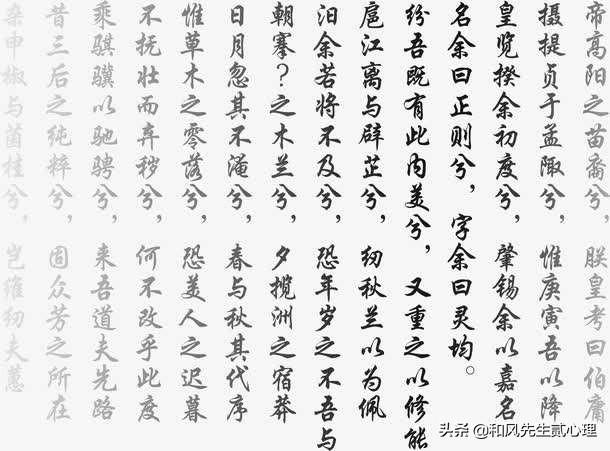 帝高阳之苗裔兮，朕皇考曰伯庸
摄提贞于孟陬兮，惟庚寅吾以降
皇览揆余初度兮，肇锡余以嘉名
名余曰正则兮，字余曰灵均。
纷吾既有此内美兮，又重之以修能
扈江离与辟芷兮，纫秋兰以为佩
汨余若将不及兮，恐年岁之不吾与
朝搴？之木兰兮，夕揽洲之宿莽
日月忽其不淹兮，春与秋其代序
惟草木之零落兮，恐美人之迟暮
不抚壮而弃秽兮，何不改乎此度
乘骐骥以驰骋兮，来吾道夫先路
昔三后之纯粹兮，固众芳之所在
杂申椒与菌桂兮，岂维纫夫蕙
头条 @和风先生贰心理